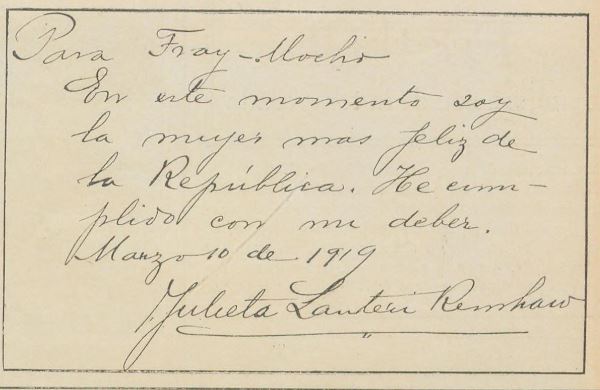 Para Fray-Mocho
En este momento soy
la mujer mas feliz de
la República. He cum-
plido con mi deber.
Marzo 10 de 1919
Julieta Lanteri Renshaw